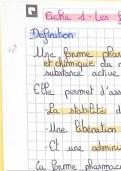 Fiche 1 : Les
Définition
Une forme pharm
et chimique du m
substance active
Elle permet d'ass
- La stabilité d
- Une libération
- Et une admini
La forme pharmac